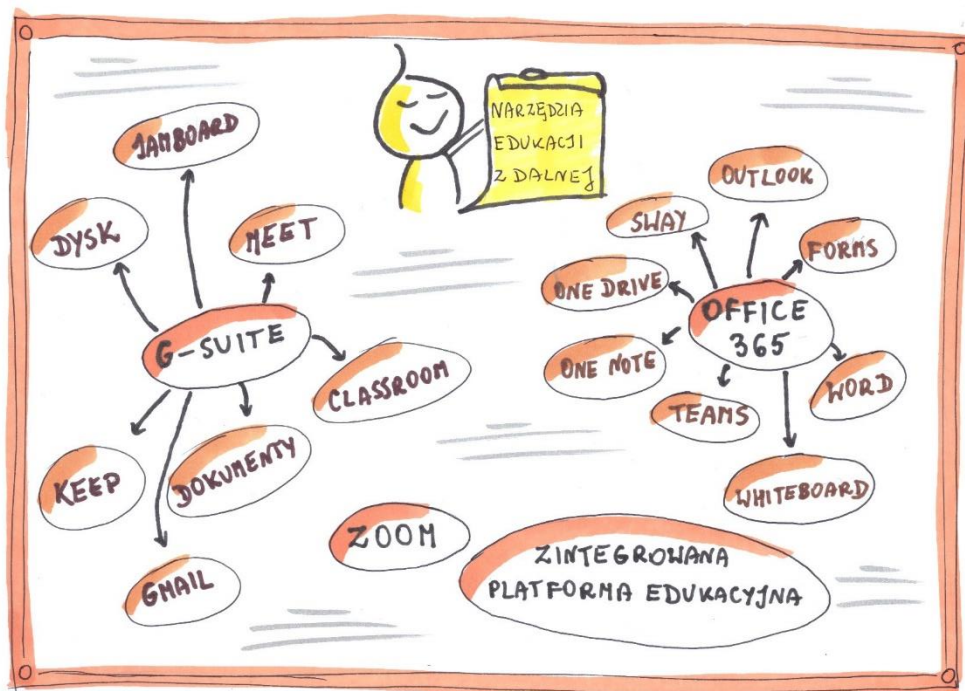 NARZĘDZIA
EDUKACJI
ZDALNEJ
JAMBOARD
DYSK
MEET
G-SUITE
CLASSROOM
KEEP
DOKUMENTY
GMAIL
OUTLOOK
SWAY
FORMS
ONE DRIVE
OFFICE
365
ONE NOTE
WORD
TEAMS
WHITEBOARD
ZOOM
ZINTEGROWANA
PLATFORMA EDUKACYJNA